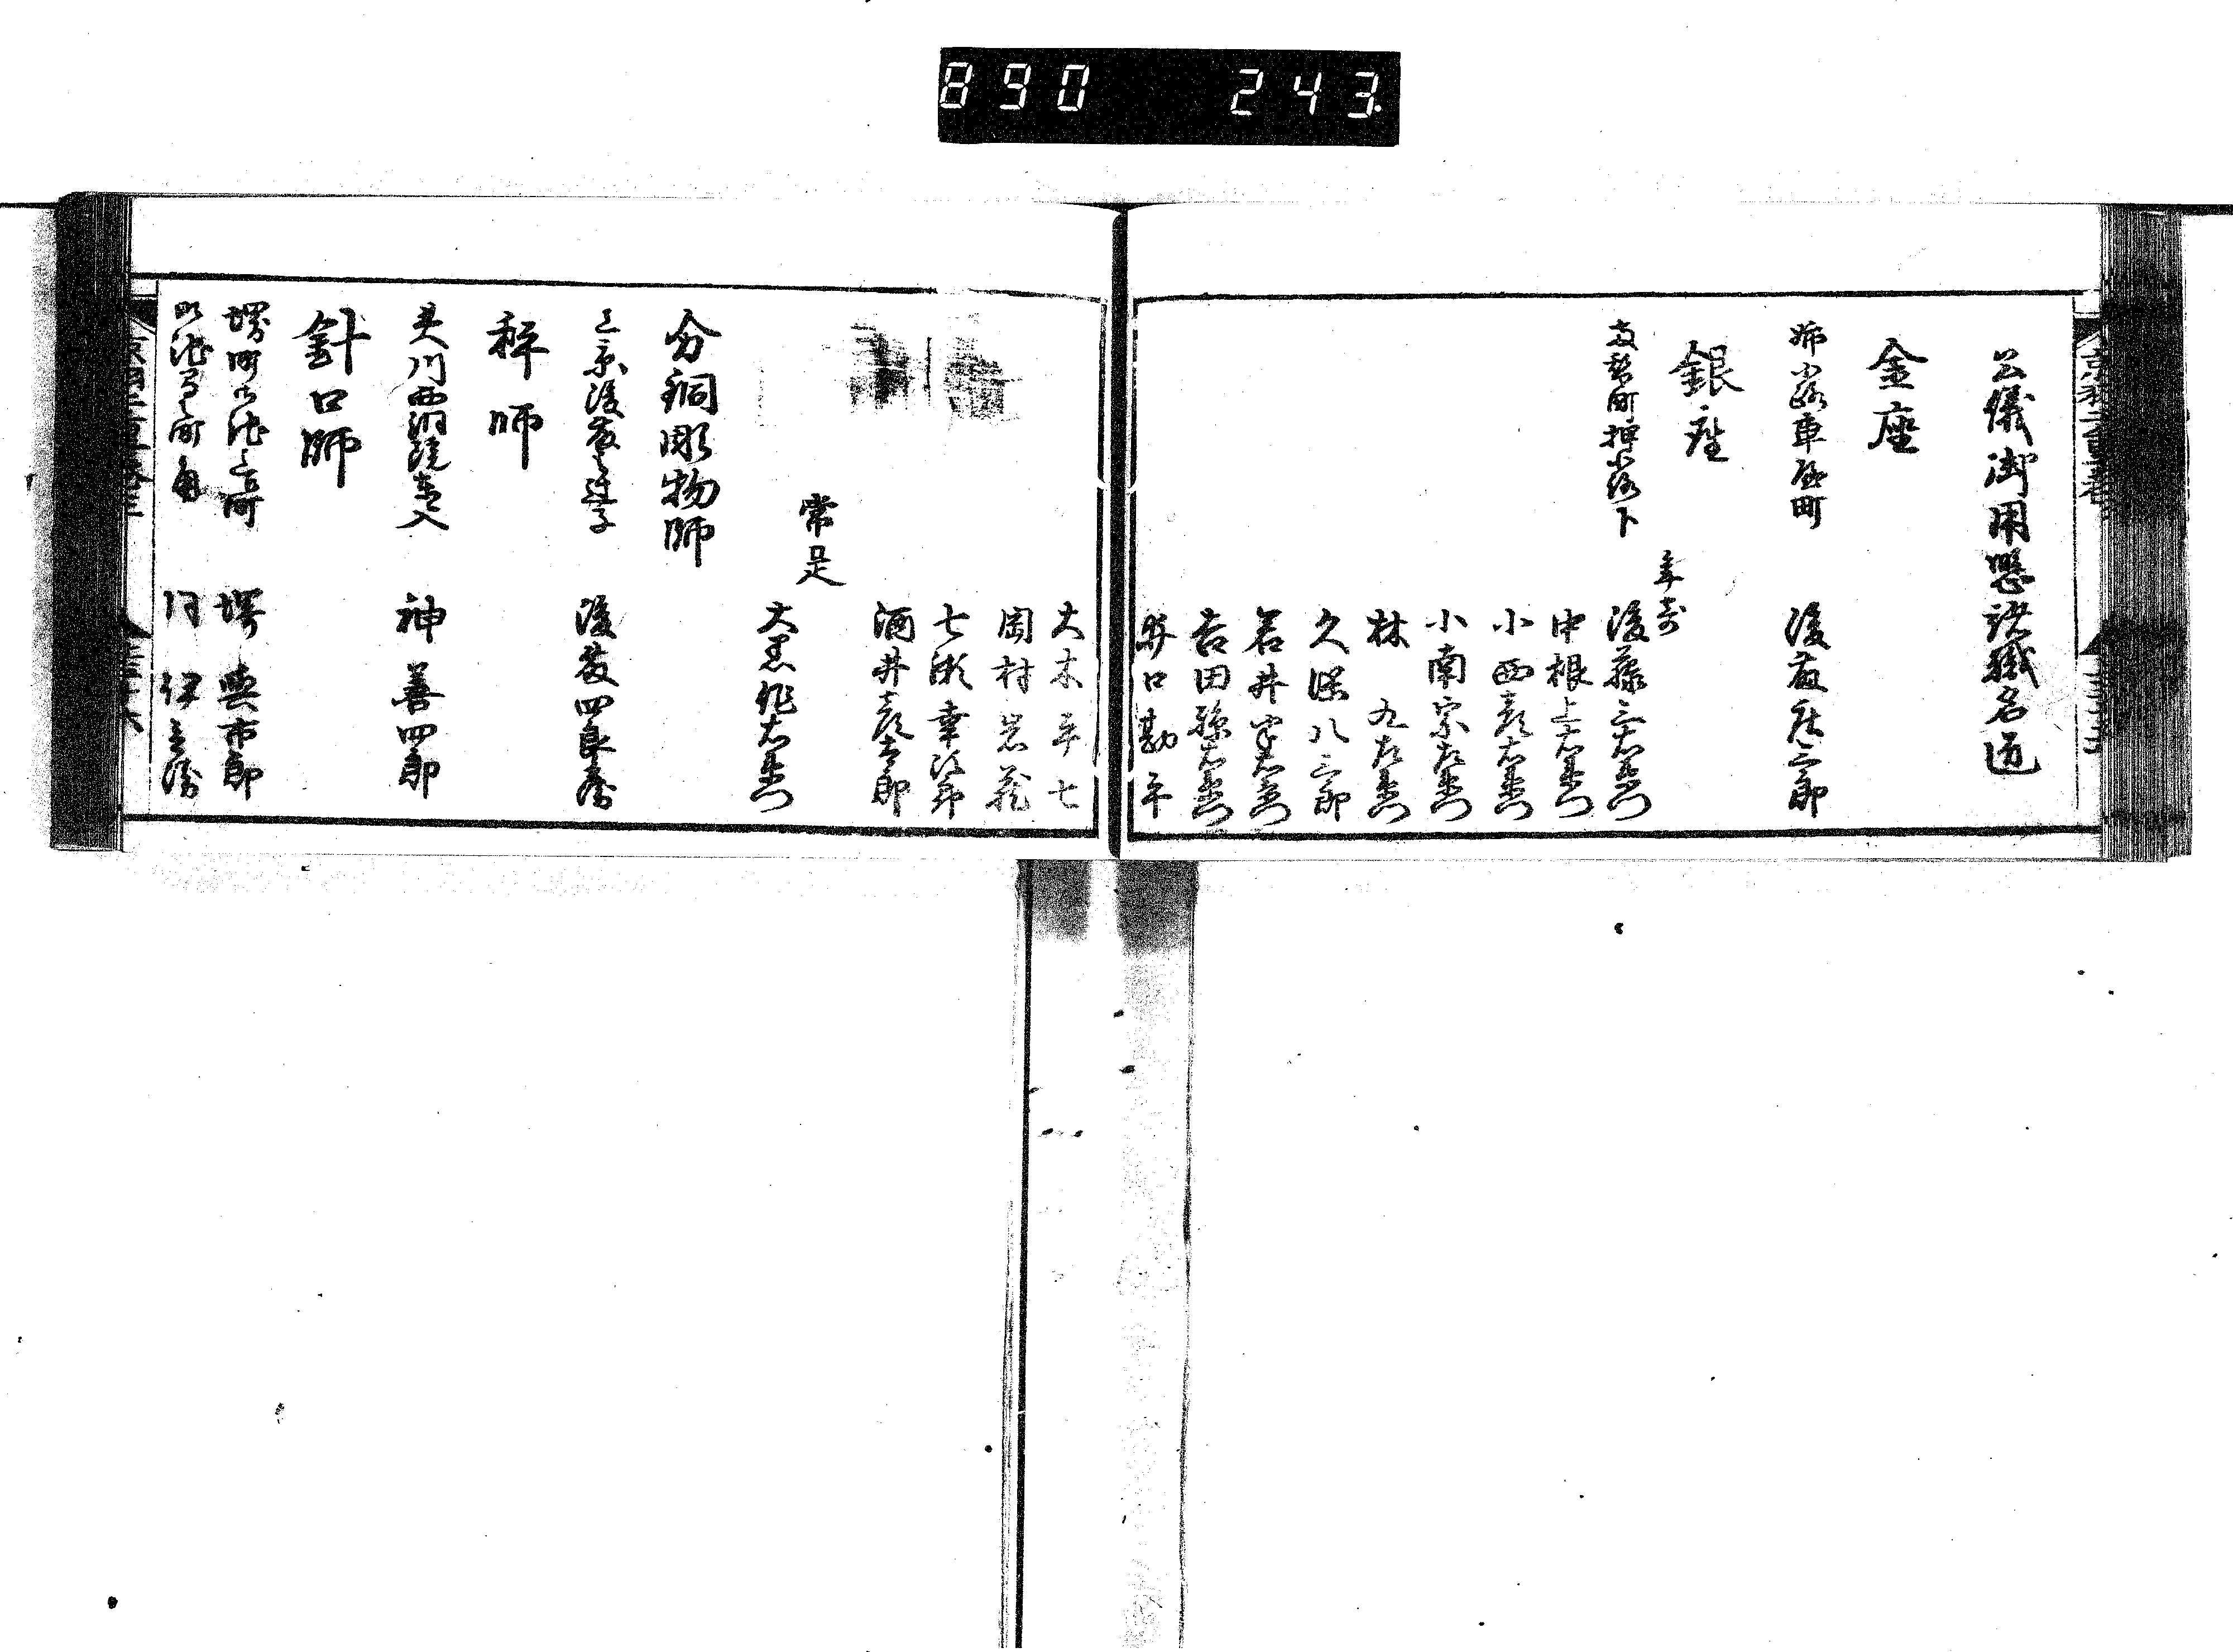 890 243
公儀御用懸諸職名過
金座
姉小路車屋町
後藤庄三郎
銀座
両替町押小路下
年寄
後藤三右衛門
中根上右衛門
小西彦右衛門
小南宗左衛門
林 九左衛門
久保八三郎
若井半右衛門
吉田孫右衛門
野口勘平
大木平七
岡村岩蔵
七瀬幸次郎
酒井彦太郎
常足
大黒作右衛門
分銅彫物師
上京後藤之辻子
後藤四良兵衛
秤師
夷川西洞院東入
神善四郎
針口師
堺町御池上町
堺与市郎
御池 町角
同 伊兵衛